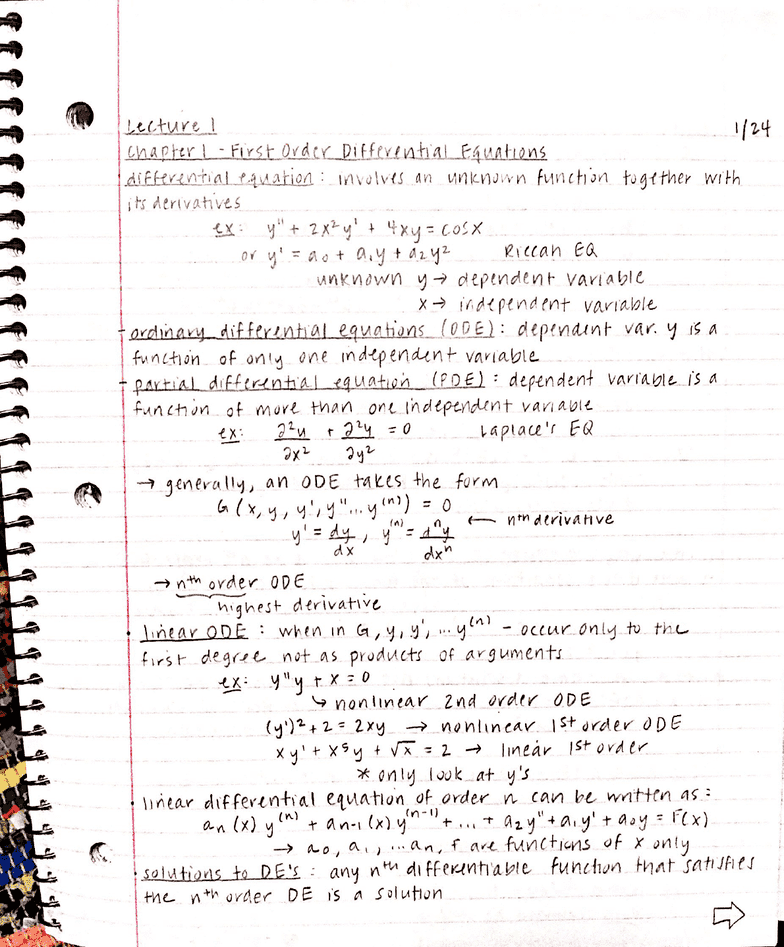 Lecture 1 1/24
Chapter 1 - First Order Differential Equations
differential equation: involves an unknown function together with
its derivatives
ex: y" + 2x²y' + 4xy = cosx
or y' = a₀ + a₁y + a₂y² Riccan EQ
unknown y → dependent variable
x → independent variable
- ordinary differential equations (ODE): dependent var. y is a
function of only one independent variable
- partial differential equation (PDE): dependent variable is a
function of more than one independent variable
ex: ∂²u/∂x² + ∂²y/∂y² = 0 Laplace's EQ
→ generally, an ODE takes the form
G(x, y, y', y"... y⁽ⁿ⁾) = 0
y' = dy/dx, y⁽ⁿ⁾ = dⁿy/dxⁿ ← nth derivative
→ nth order ODE
highest derivative
• linear ODE: when in G, y, y', ... y⁽ⁿ⁾ - occur only to the
first degree not as products of arguments
ex: y"y + x = 0
↳ nonlinear 2nd order ODE
(y')² + 2 = 2xy → nonlinear 1st order ODE
xy' + x⁵y + √x = 2 → linear 1st order
* only look at y's
• linear differential equation of order n can be written as:
aₙ(x) y⁽ⁿ⁾ + aₙ₋₁(x) y⁽ⁿ⁻¹⁾ + ... + a₂y" + a₁y' + a₀y = F(x)
→ a₀, a₁, ... aₙ, F are functions of x only
• solutions to DE's: any nth differentiable function that satisfies
the nth order DE is a solution
⇨